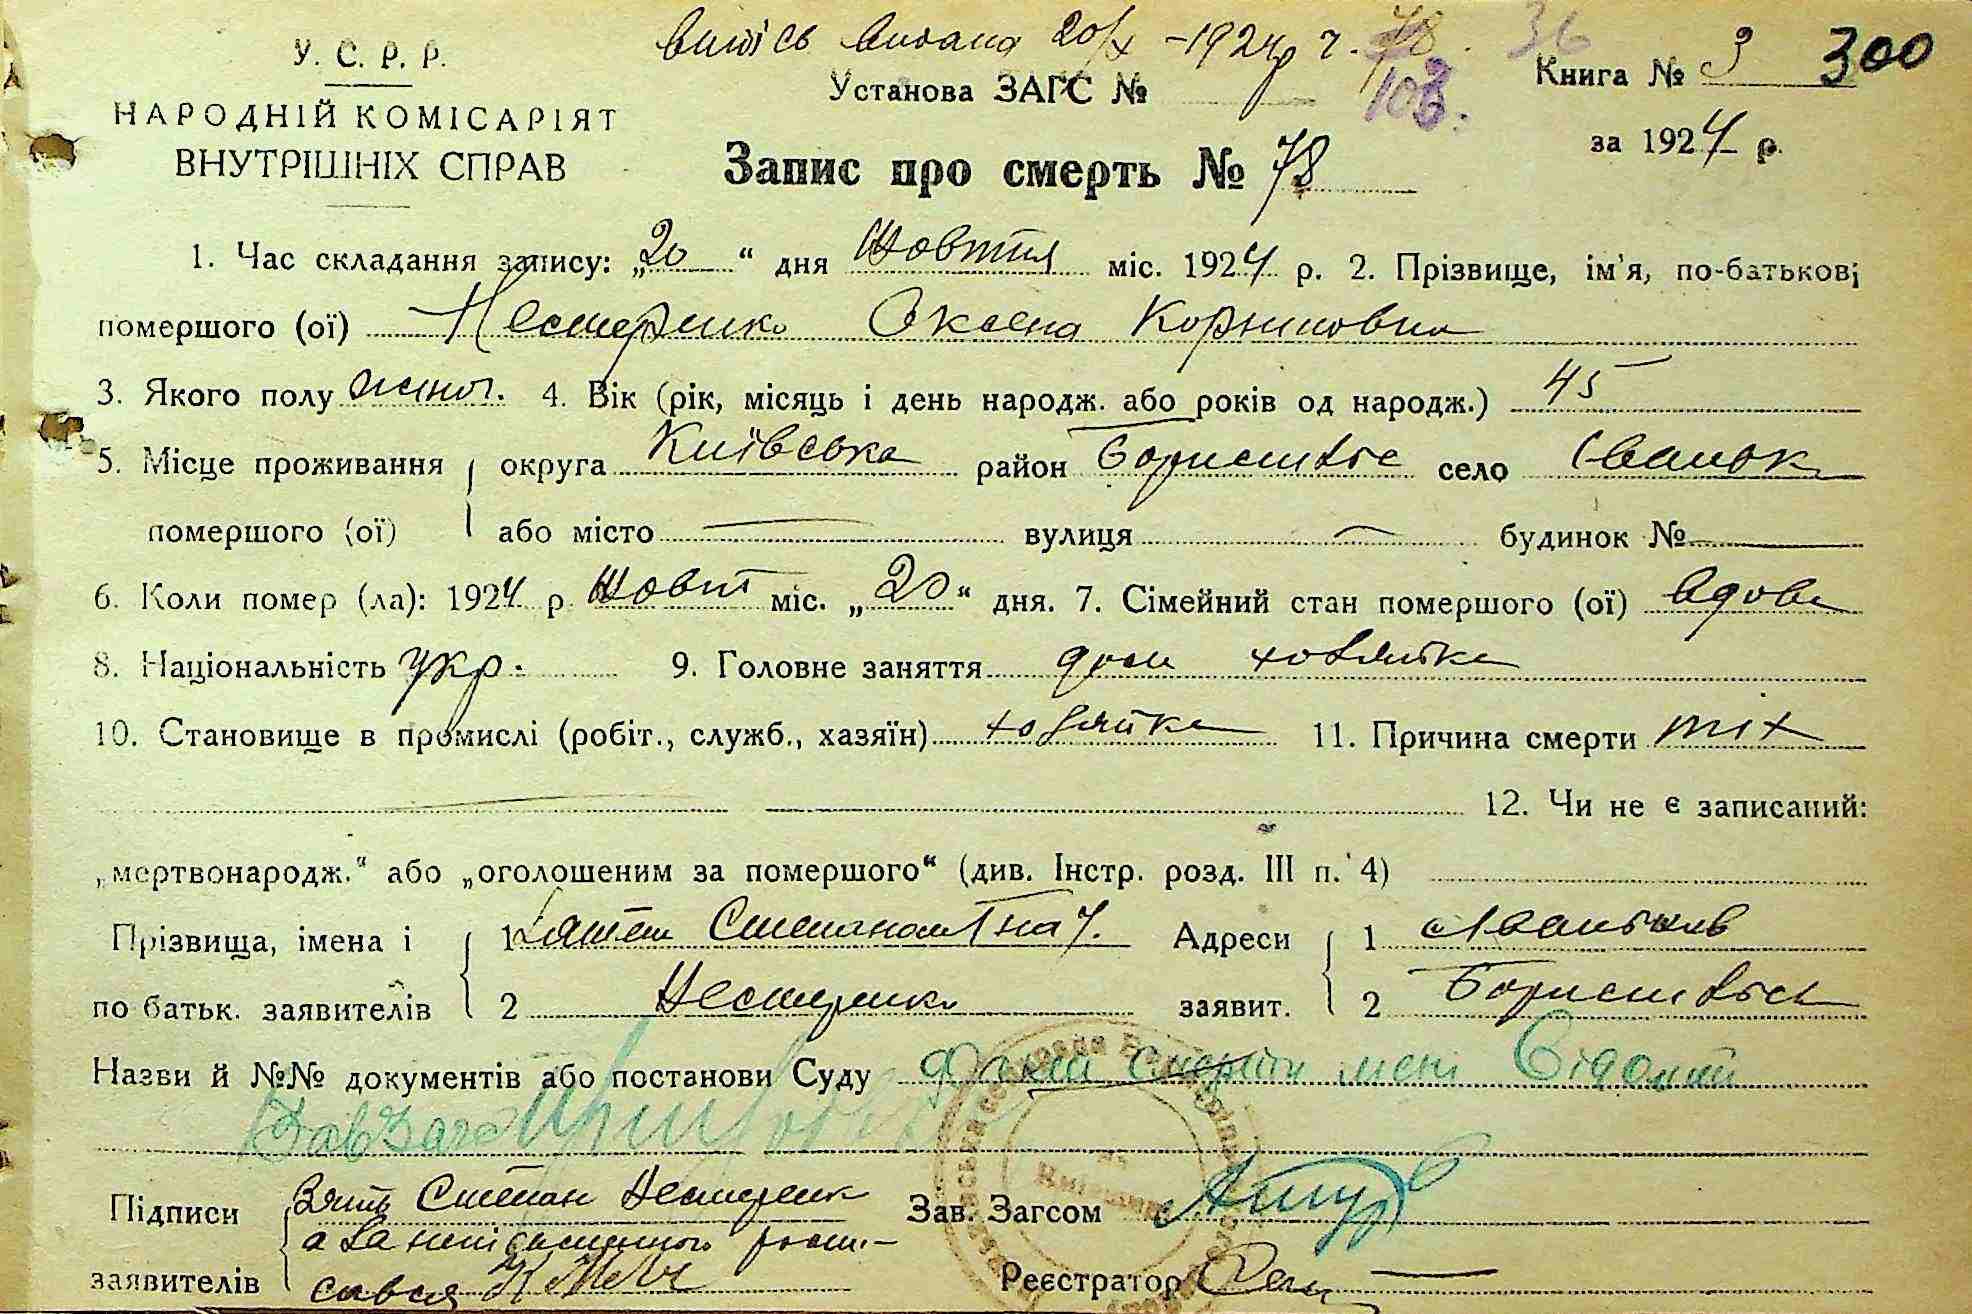 У. С. Р. Р.
НАРОДНІЙ КОМІСАРІЯТ
ВНУТРІШНІХ СПРАВ
випісь видана 20/X - 1924 р ч. 78. 36
103.
Установа ЗАГС №
Книга № 3 300
за 1924 р.
Запис про смерть № 78
1. Час складання запису: „20“ дня Жовтня міс. 1924 р. 2. Прізвище, ім'я, по-батькові
помершого (ої) Нестеренко Оксена Корниловна
3. Якого полу жіноч. 4. Вік (рік, місяць і день народж. або років од народж.) 45
5. Місце проживання округа Київська район Бориспільс село Іваньк
помершого (ої) або місто вулиця будинок №
6. Коли помер (ла): 1924 р Жовт міс. „20“ дня. 7. Сімейний стан помершого (ої) вдова
8. Національність укр. 9. Головне заняття дом хозяйка
10. Становище в промислі (робіт., служб., хазяїн) хозяйка 11. Причина смерти тіх
12. Чи не є записаний:
„мертвонародж.“ або „оголошеним за помершого“ (див. Інстр. розд. III п. 4)
Прізвища, імена і 1 Степан Гнат. Адреси 1 Іваньків
по батьк. заявителів 2 Нестеренко заявит. 2 Бориспільськ
Назви й №№ документів або постанови Суду Факт смерти мені Відомий
ЗавЗаго
Підписи Зять Степан Нестеренк Зав. Загсом
а за неписьменного роспи-
заявителів сався Реєстратор